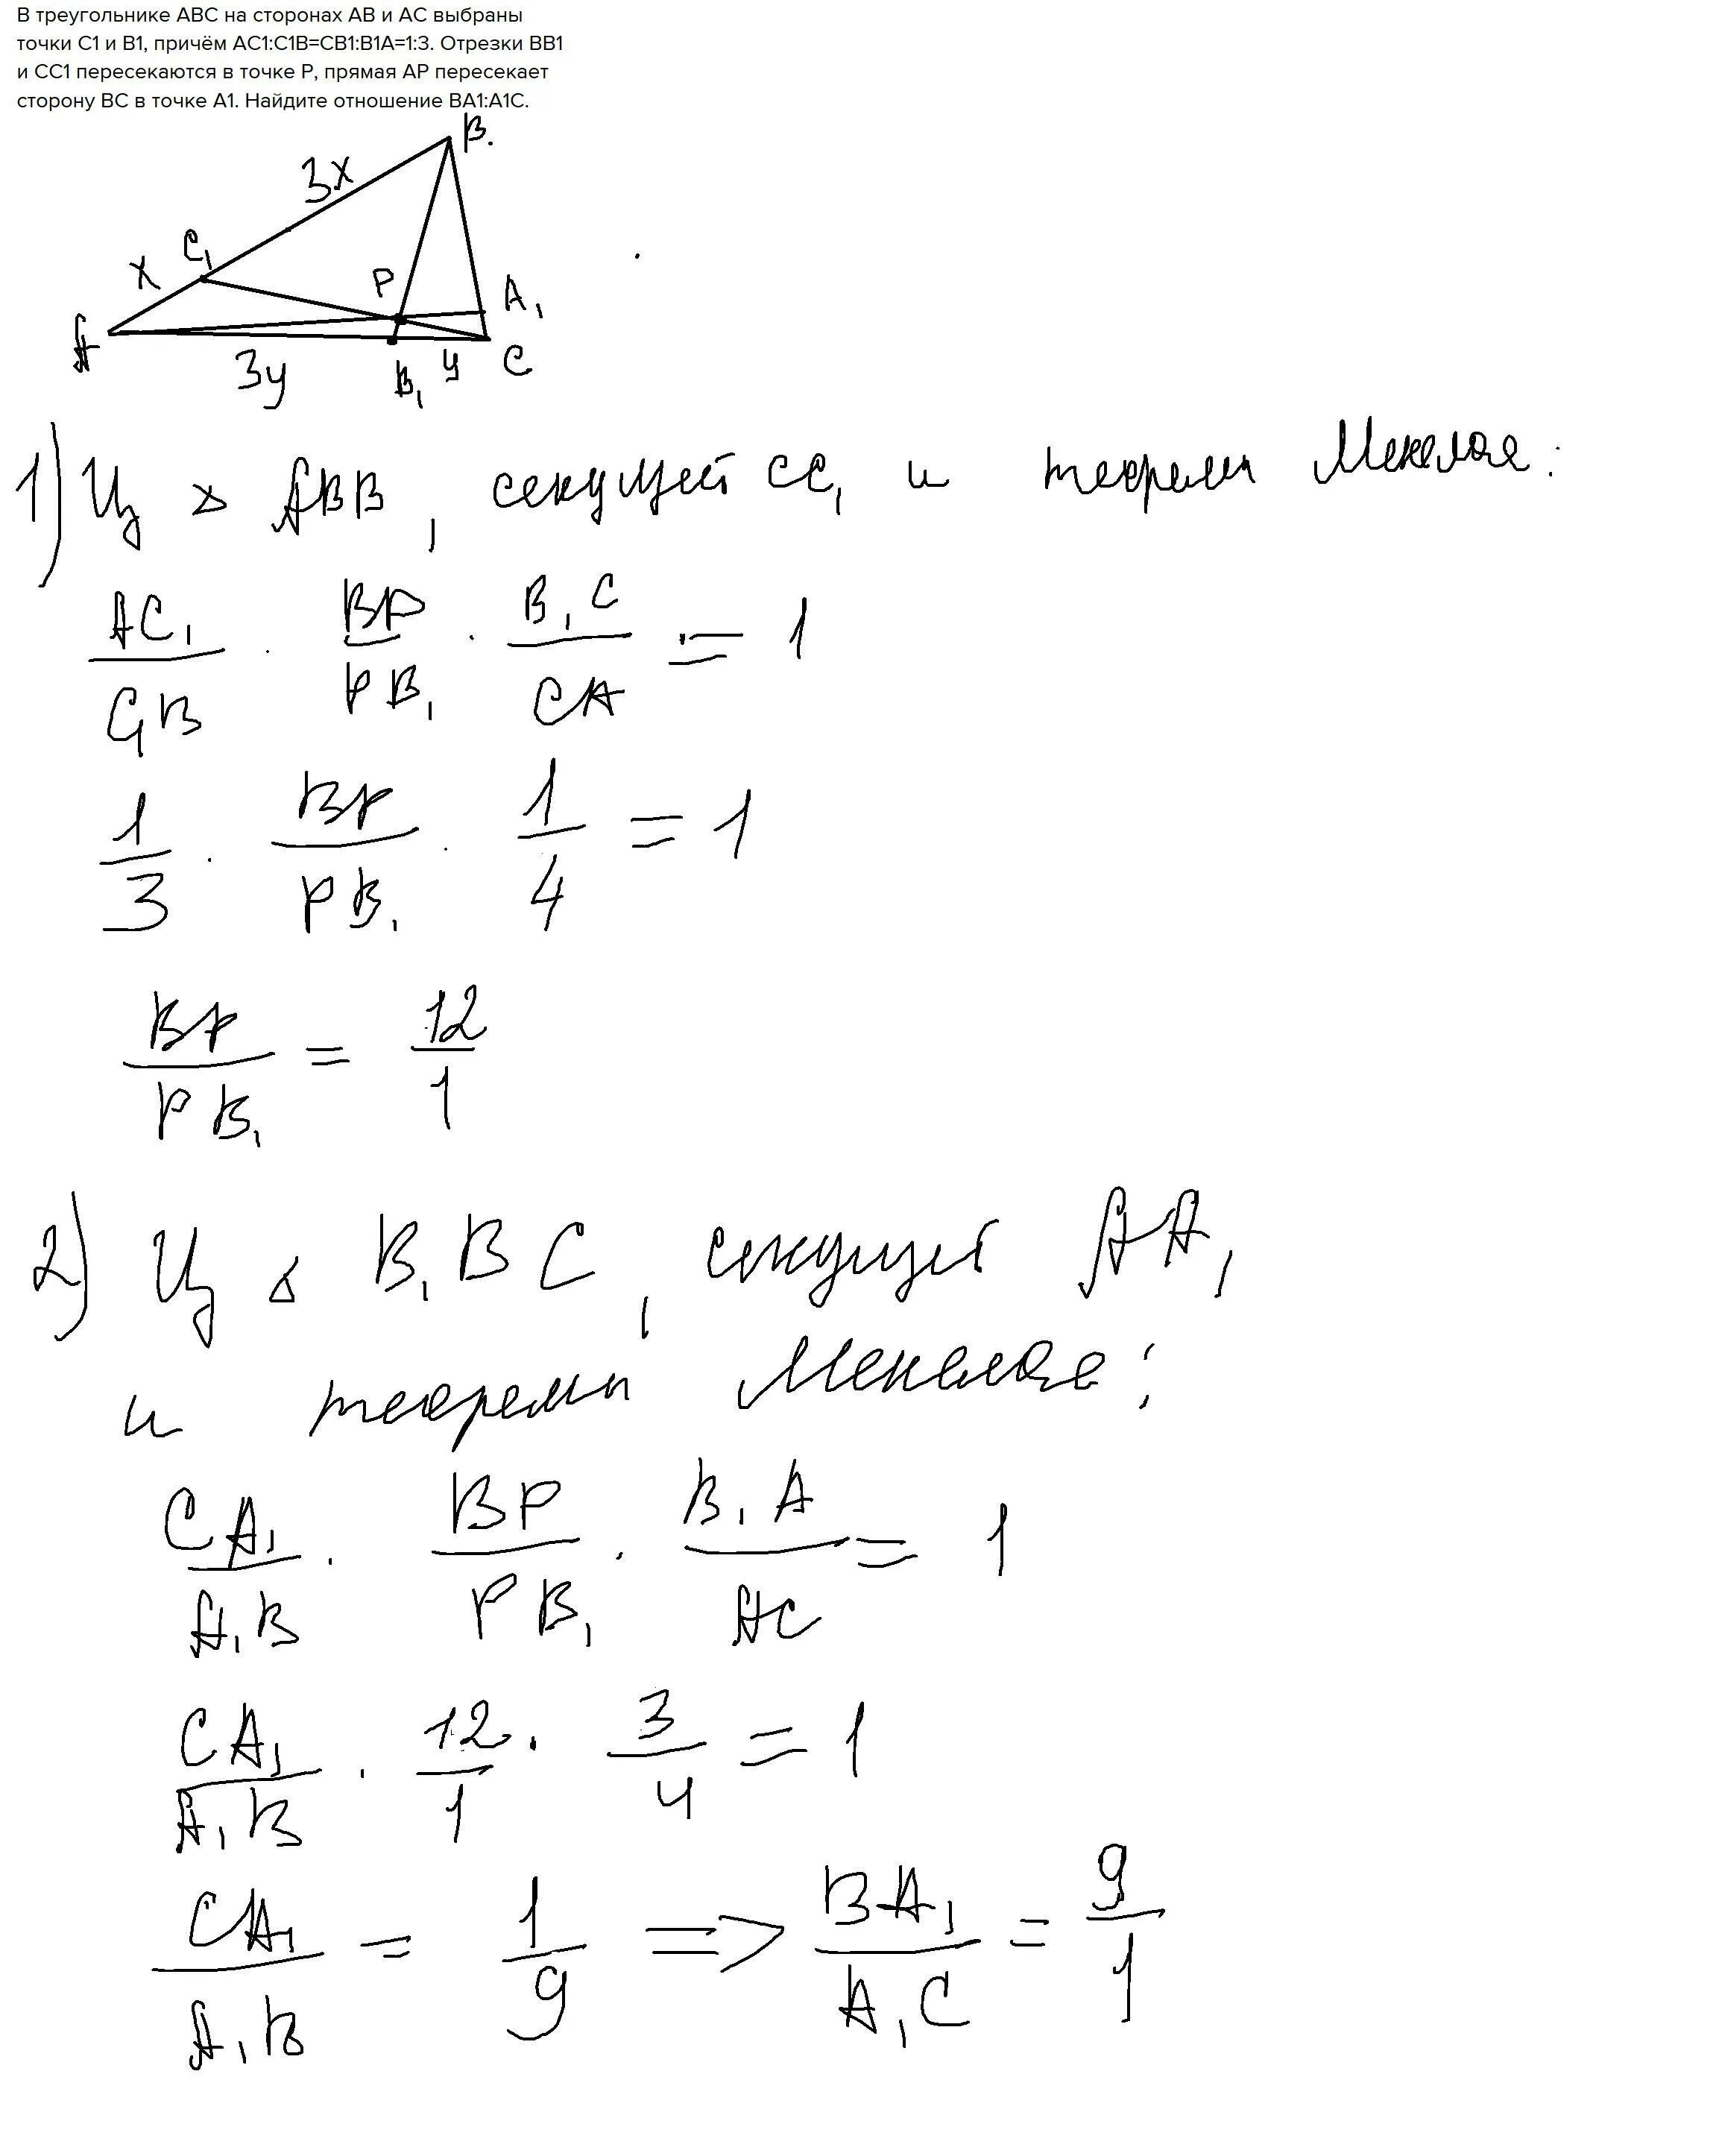 В треугольнике ABC на сторонах AB и AC выбраны
точки C1 и B1, причём AC1:C1B=CB1:B1A=1:3. Отрезки BB1
и CC1 пересекаются в точке P, прямая AP пересекает
сторону BC в точке A1. Найдите отношение BA1:A1C.
B.
3x
C₁
x
P
A₁
A
3y
B₁
y
C
1) Из △ ABB₁, секущей CC₁ и теоремы Менелая:
AC₁/C₁B · BP/PB₁ · B₁C/CA = 1
1/3 · BP/PB₁ · 1/4 = 1
BP/PB₁ = 12/1
2) Из △ B₁BC, секущей AA₁
и теоремы Менелая:
CA₁/A₁B · BP/PB₁ · B₁A/AC = 1
CA₁/A₁B · 12/1 · 3/4 = 1
CA₁/A₁B = 1/9 => BA₁/A₁C = 9/1